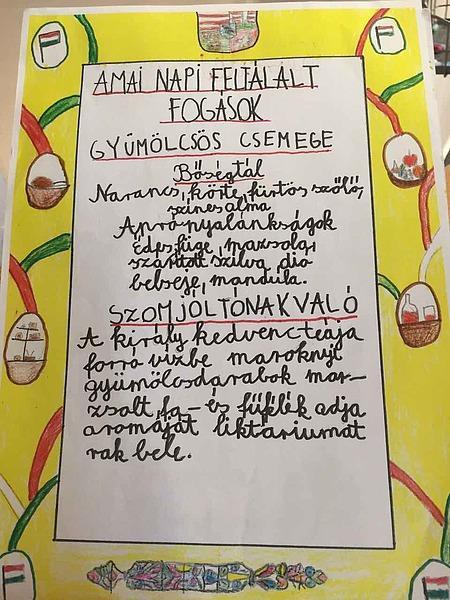 A MAI NAPI FELTÁLALT
FOGÁSOK
GYÜMÖLCSÖS CSEMEGE
Bőségtál
Narancs, körte, fürtös szőlő,
színes alma
Apró nyalánkságok
édes füge, mazsola,
szárított szilva, dió
belseje, mandula.
SZOMJOLTÓNAK VALÓ
A király kedvenc teája
forró vízbe maroknyi
gyümölcsdarabok mor-
zsolt, fa- és fűfélék adja
aromáját liktáriumát
rak bele.